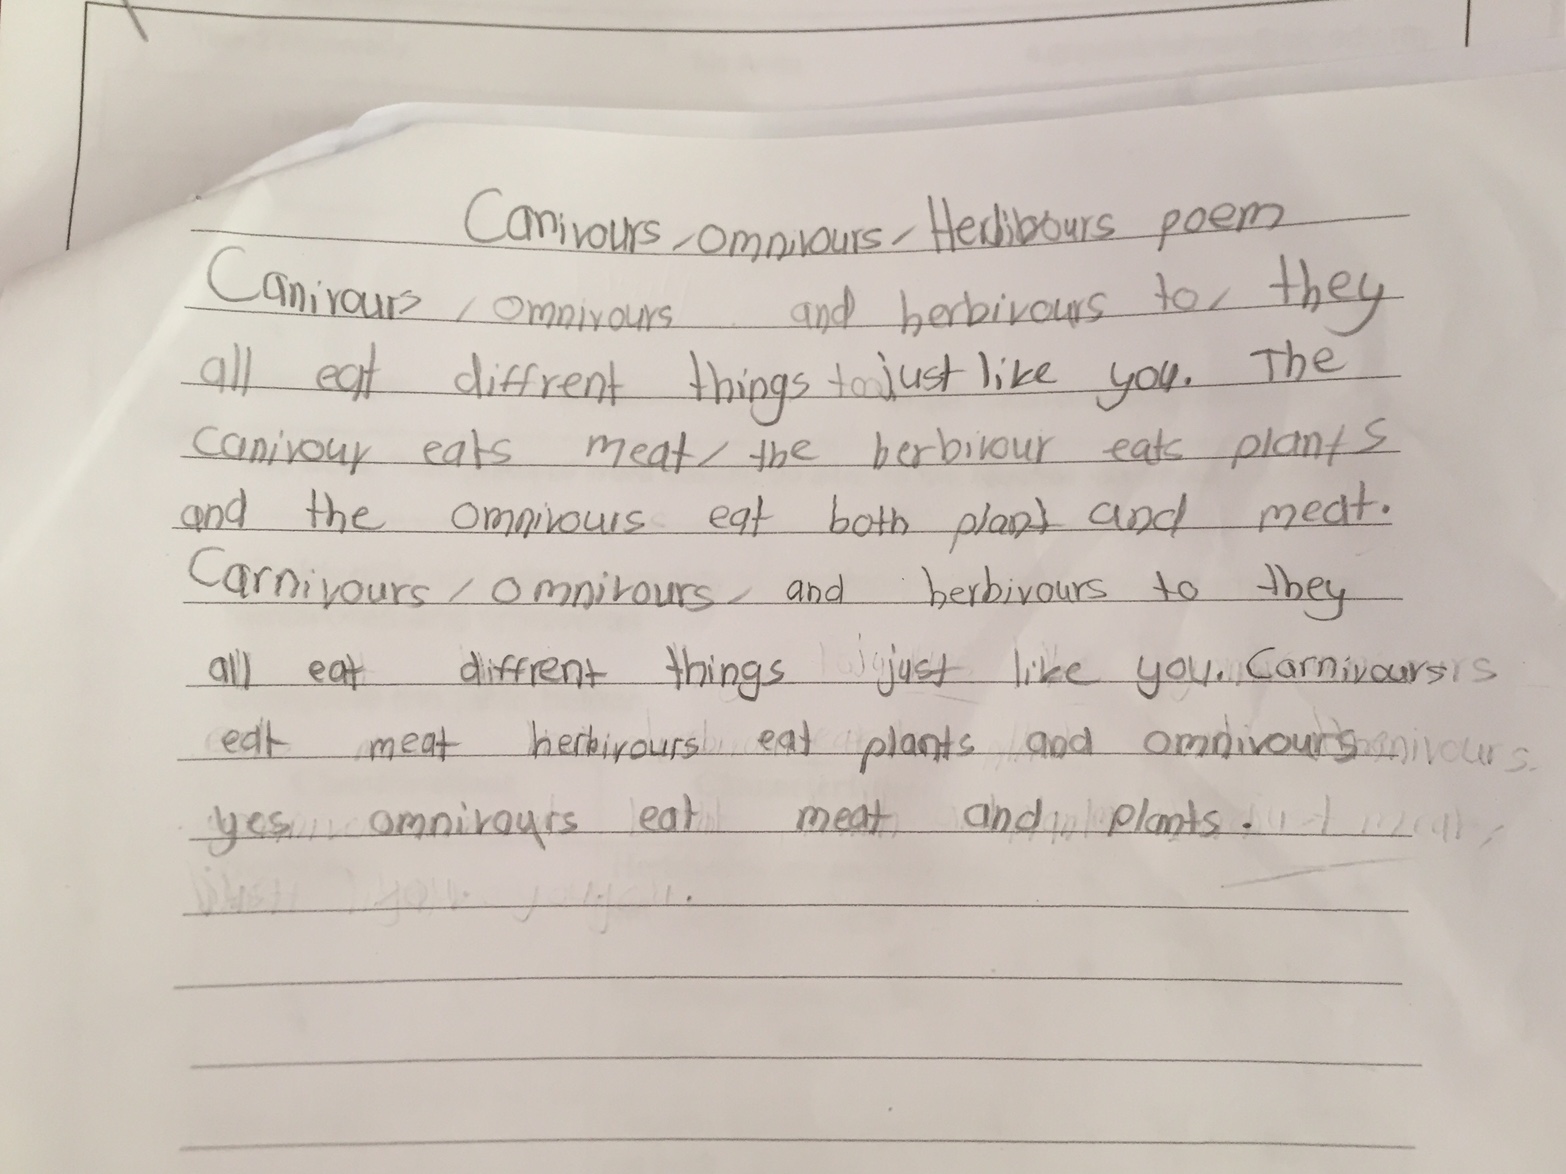 Canivours, omnivours, Herbibours poem
Canivours, omnivours and herbivours to, they
all eat diffrent things just like you. The
canivour eats meat, the herbivour eats plants
and the omnivours eat both plant and meat.
Carnivours, omnivours, and herbivours to they
all eat diffrent things just like you. Carnivours
eat meat herbivours eat plants and omnivours
yes omnivours eat meat and plants.